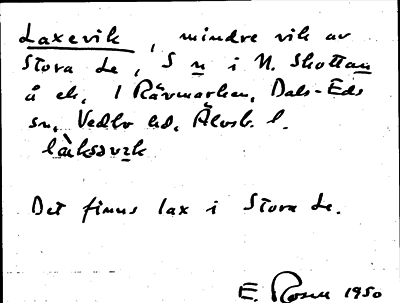 Laxevik, mindre vik av
Stora Le, S n i N. Skottan
å ek, 1 Rävmarken, Dals-Eds
sn, Vedbo hd, Älvsb. l.
làksəvik
Det finns lax i Stora Le.
E. Rosen 1950